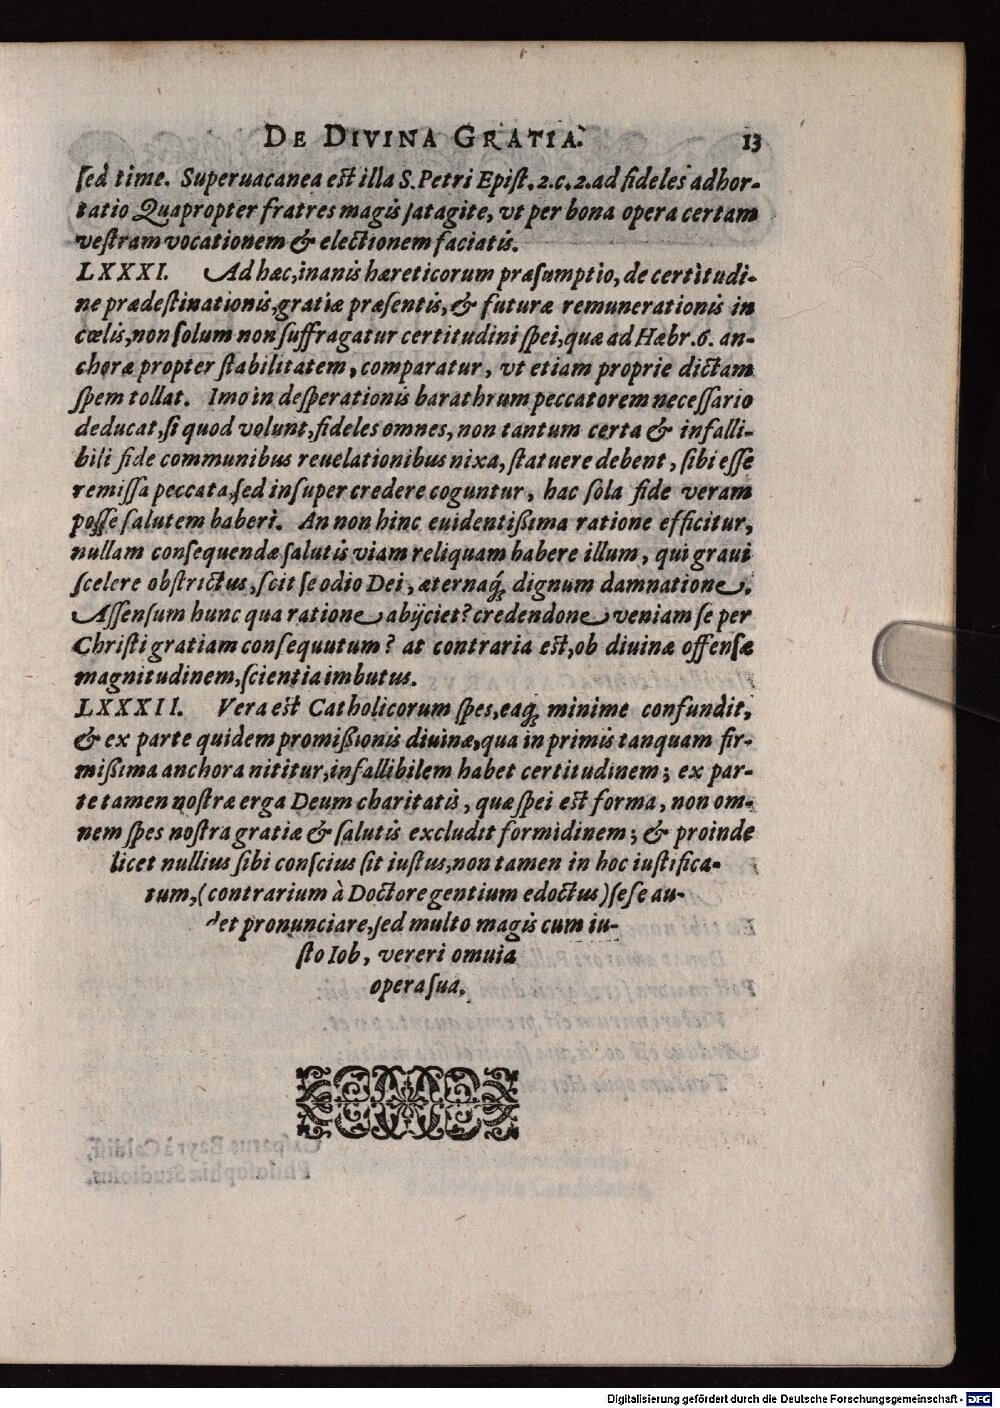 DE DIVINA GRATIA. 13
sed time. Superuacanea est illa S. Petri Epist. 2. c. 2. ad fideles adhor-
tatio Quapropter fratres magis satagite, vt per bona opera certam
vestram vocationem & electionem faciatis.
LXXXI. Ad hæc, inanis hæreticorum præsumptio, de certitudi-
ne prædestinationis, gratiæ præsentis, & futuræ remunerationis in
cœlis, non solum non suffragatur certitudini spei, quæ ad Hæbr. 6. an-
choræ propter stabilitatem, comparatur, vt etiam proprie dictam
spem tollat. Imo in desperationis barathrum peccatorem necessario
deducat, si quod volunt, fideles omnes, non tantum certa & infalli-
bili fide communibus reuelationibus nixa, statuere debent, sibi esse
remissa peccata, sed insuper credere coguntur, hac sola fide veram
posse salutem haberi. An non hinc euidentißima ratione efficitur,
nullam consequendæ salutis viam reliquam habere illum, qui graui
scelere obstrictus, scit se odio Dei, æternaq́; dignum damnatione.
Assensum hunc qua ratione abijciet? credendone veniam se per
Christi gratiam consequutum? at contraria est, ob diuinæ offensæ
magnitudinem, scientia imbutus.
LXXXII. Vera est Catholicorum spes, eaq́; minime confundit,
& ex parte quidem promißionis diuinæ, qua in primis tanquam fir-
mißima anchora nititur, infallibilem habet certitudinem; ex par-
te tamen nostræ erga Deum charitatis, quæ spei est forma, non om-
nem spes nostra gratiæ & salutis excludit formidinem; & proinde
licet nullius sibi conscius sit iustus, non tamen in hoc iustifica-
tum, (contrarium à Doctore gentium edoctus) sese au-
det pronunciare, sed multo magis cum iu-
sto Iob, vereri omuia
opera sua.
Digitalisierung gefördert durch die Deutsche Forschungsgemeinschaft - DFG